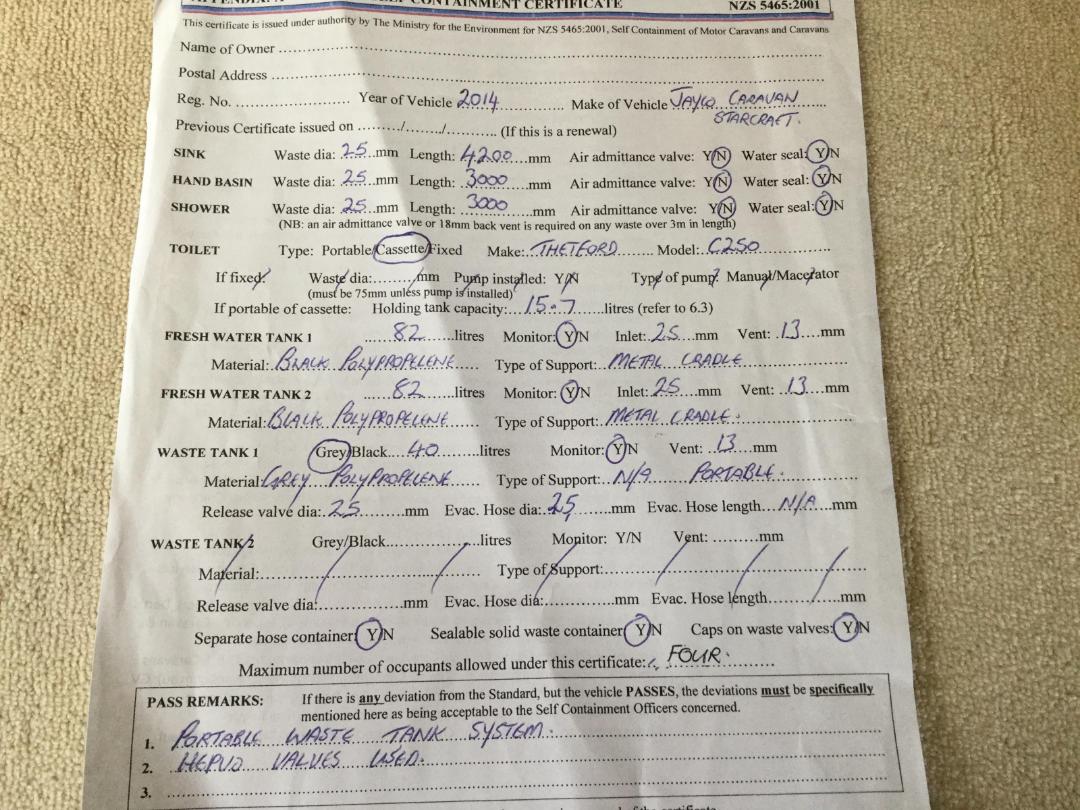 CONTAINMENT CERTIFICATE NZS 5465:2001
This certificate is issued under authority by The Ministry for the Environment for NZS 5465:2001, Self Containment of Motor Caravans and Caravans
Name of Owner
Postal Address
Reg. No. Year of Vehicle 2014 Make of Vehicle JAYCO CARAVAN
STARCRAFT.
Previous Certificate issued on ......../......../......... (If this is a renewal)
SINK Waste dia: 25 mm Length: 4200 mm Air admittance valve: Y/N Water seal: Y/N
HAND BASIN Waste dia: 25 mm Length: 3000 mm Air admittance valve: Y/N Water seal: Y/N
SHOWER Waste dia: 25 mm Length: 3000 mm Air admittance valve: Y/N Water seal: Y/N
(NB: an air admittance valve or 18mm back vent is required on any waste over 3m in length)
TOILET Type: Portable/Cassette/Fixed Make: THETFORD Model: C250
If fixed: Waste dia: mm Pump installed: Y/N Type of pump? Manual/Macerator
(must be 75mm unless pump is installed)
If portable of cassette: Holding tank capacity: 15-7 litres (refer to 6.3)
FRESH WATER TANK 1 82 litres Monitor: Y/N Inlet: 25 mm Vent: 13 mm
Material: BLACK POLYPROPELENE Type of Support: METAL CRADLE
FRESH WATER TANK 2 82 litres Monitor: Y/N Inlet: 25 mm Vent: 13 mm
Material: BLACK POLYPROPELENE Type of Support: METAL CRADLE.
WASTE TANK 1 Grey/Black 40 litres Monitor: Y/N Vent: 13 mm
Material: GREY POLYPROPELENE Type of Support: N/A PORTABLE.
Release valve dia: 25 mm Evac. Hose dia: 25 mm Evac. Hose length N/A mm
WASTE TANK 2 Grey/Black litres Monitor: Y/N Vent: mm
Material: Type of Support:
Release valve dia: mm Evac. Hose dia: mm Evac. Hose length mm
Separate hose container: Y/N Sealable solid waste container: Y/N Caps on waste valves: Y/N
Maximum number of occupants allowed under this certificate: FOUR.
PASS REMARKS: If there is any deviation from the Standard, but the vehicle PASSES, the deviations must be specifically
mentioned here as being acceptable to the Self Containment Officers concerned.
1. PORTABLE WASTE TANK SYSTEM.
2. HEPVO VALVES USED.
3.